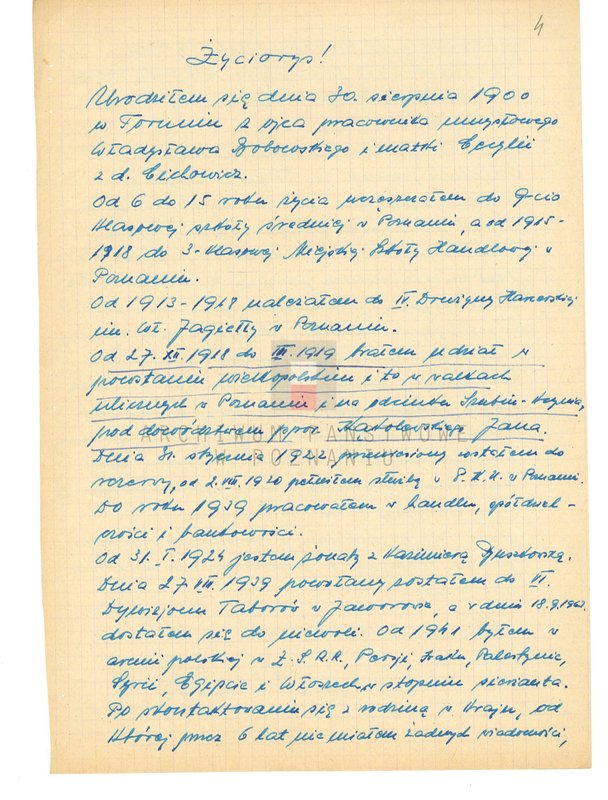 4
Życiorys!
Urodziłem się dnia 30. sierpnia 1900
w Toruniu z ojca pracownika umysłowego
Władysława Dobrowolskiego i matki Cecylii
z d. Cichowicz.
Od 6 do 15 roku życia uczęszczałem do 9-cio
klasowej szkoły średniej w Poznaniu, a od 1915-
1918 do 3-klasowej Miejskiej Szkoły Handlowej w
Poznaniu.
Od 1913-1917 należałem do IV. Drużyny Harcerskiej
im. Wł. Jagiełły w Poznaniu.
Od 27. XII. 1918 do III. 1919 brałem udział w
powstaniu wielkopolskim i to w walkach
ulicznych w Poznaniu i na odcinku Szubin-Kcynia,
pod dowództwem ppor. Jana.
ARCHIWUM PAŃSTWOWE
W POZNANIU
Dnia 31. stycznia 1922 przeniesiony zostałem do
rezerwy, od 2. VIII. 1920 pełniłem służbę w P.K.U. w Poznaniu.
Do roku 1939 pracowałem w handlu, spółdziel-
czości i bankowości.
Od 31. I. 1924 jestem żonaty z Kazimierą
Dnia 27. VIII. 1939 powołany zostałem do VI.
Dywizjonu Taborów w Jaworowie, a w dniu 18.9.
dostałem się do niewoli. Od 1941 byłem w
armii polskiej w Z.S.R.R., Persji, Iraku, Palestynie,
Syrii, Egipcie i Włoszech w stopniu sierżanta.
Po skontaktowaniu się z rodziną w kraju, od
której przez 6 lat nie miałem żadnych wiadomości,